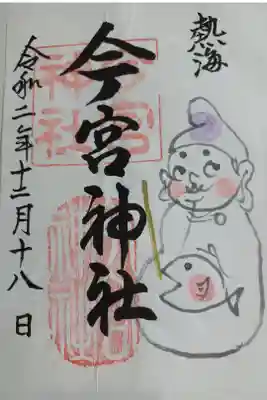 熱海
今宮神社
令和二年十二月十八日